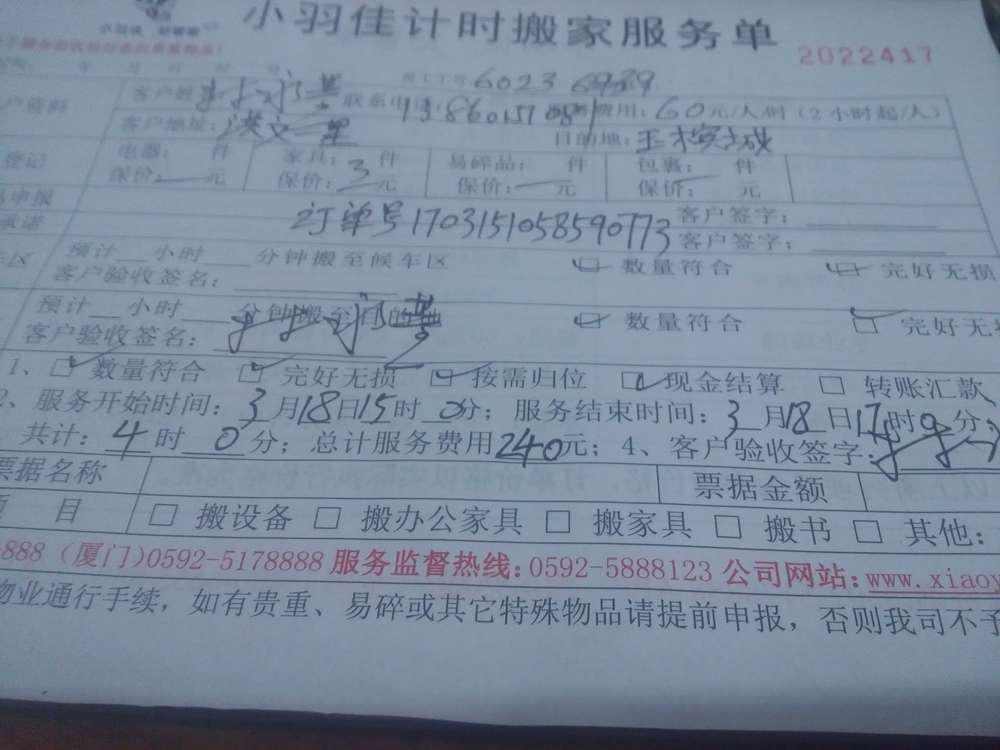 小羽佳计时搬家服务单
2022417
员工工号:6023 6939
户资料 客户姓名: 联系电话:13860157081 费用:60元/人/时(2小时起/人)
客户地址:洪文一里 目的地:
登记 电器: 件 家具: 件 易碎品: 件 包裹: 件
保价:— 元 保价:3 元 保价:— 元 保价:— 元
申报 订单号1703151058590773 客户签字:
承诺 客户签字:
车区 预计__小时__分钟搬至候车区 ☑ 数量符合 ☑ 完好无损
客户验收签名:
预计__小时__分钟搬至目的地 ☑ 数量符合 ☑ 完好无
客户验收签名:
1、☑ 数量符合 ☑ 完好无损 ☑ 按需归位 ☑ 现金结算 □ 转账汇款
2、服务开始时间:3月18日15时0分;服务结束时间:3月18日17时0分;
共计:4时0分;总计服务费用240元;4、客户验收签字:
票据名称 票据金额
项 目 □ 搬设备 □ 搬办公家具 □ 搬家具 □ 搬书 □ 其他:
888 (厦门)0592-5178888 服务监督热线:0592-5888123 公司网站:www.xiaoy
物业通行手续,如有贵重、易碎或其它特殊物品请提前申报,否则我司不予